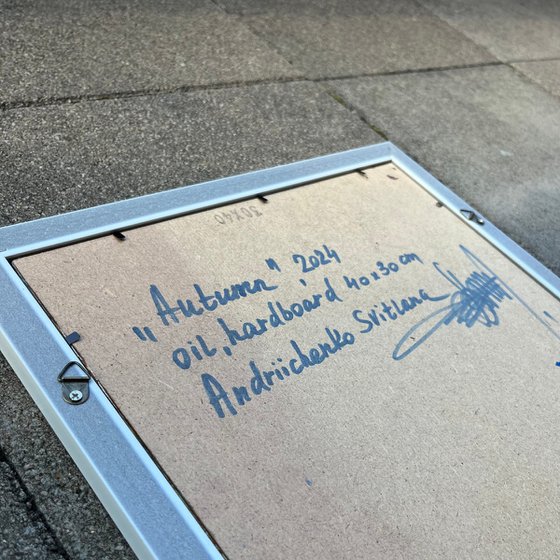 30x40
„Autumn" 2024
oil, hardboard 40x30 cm
Andriichenko Svitlana